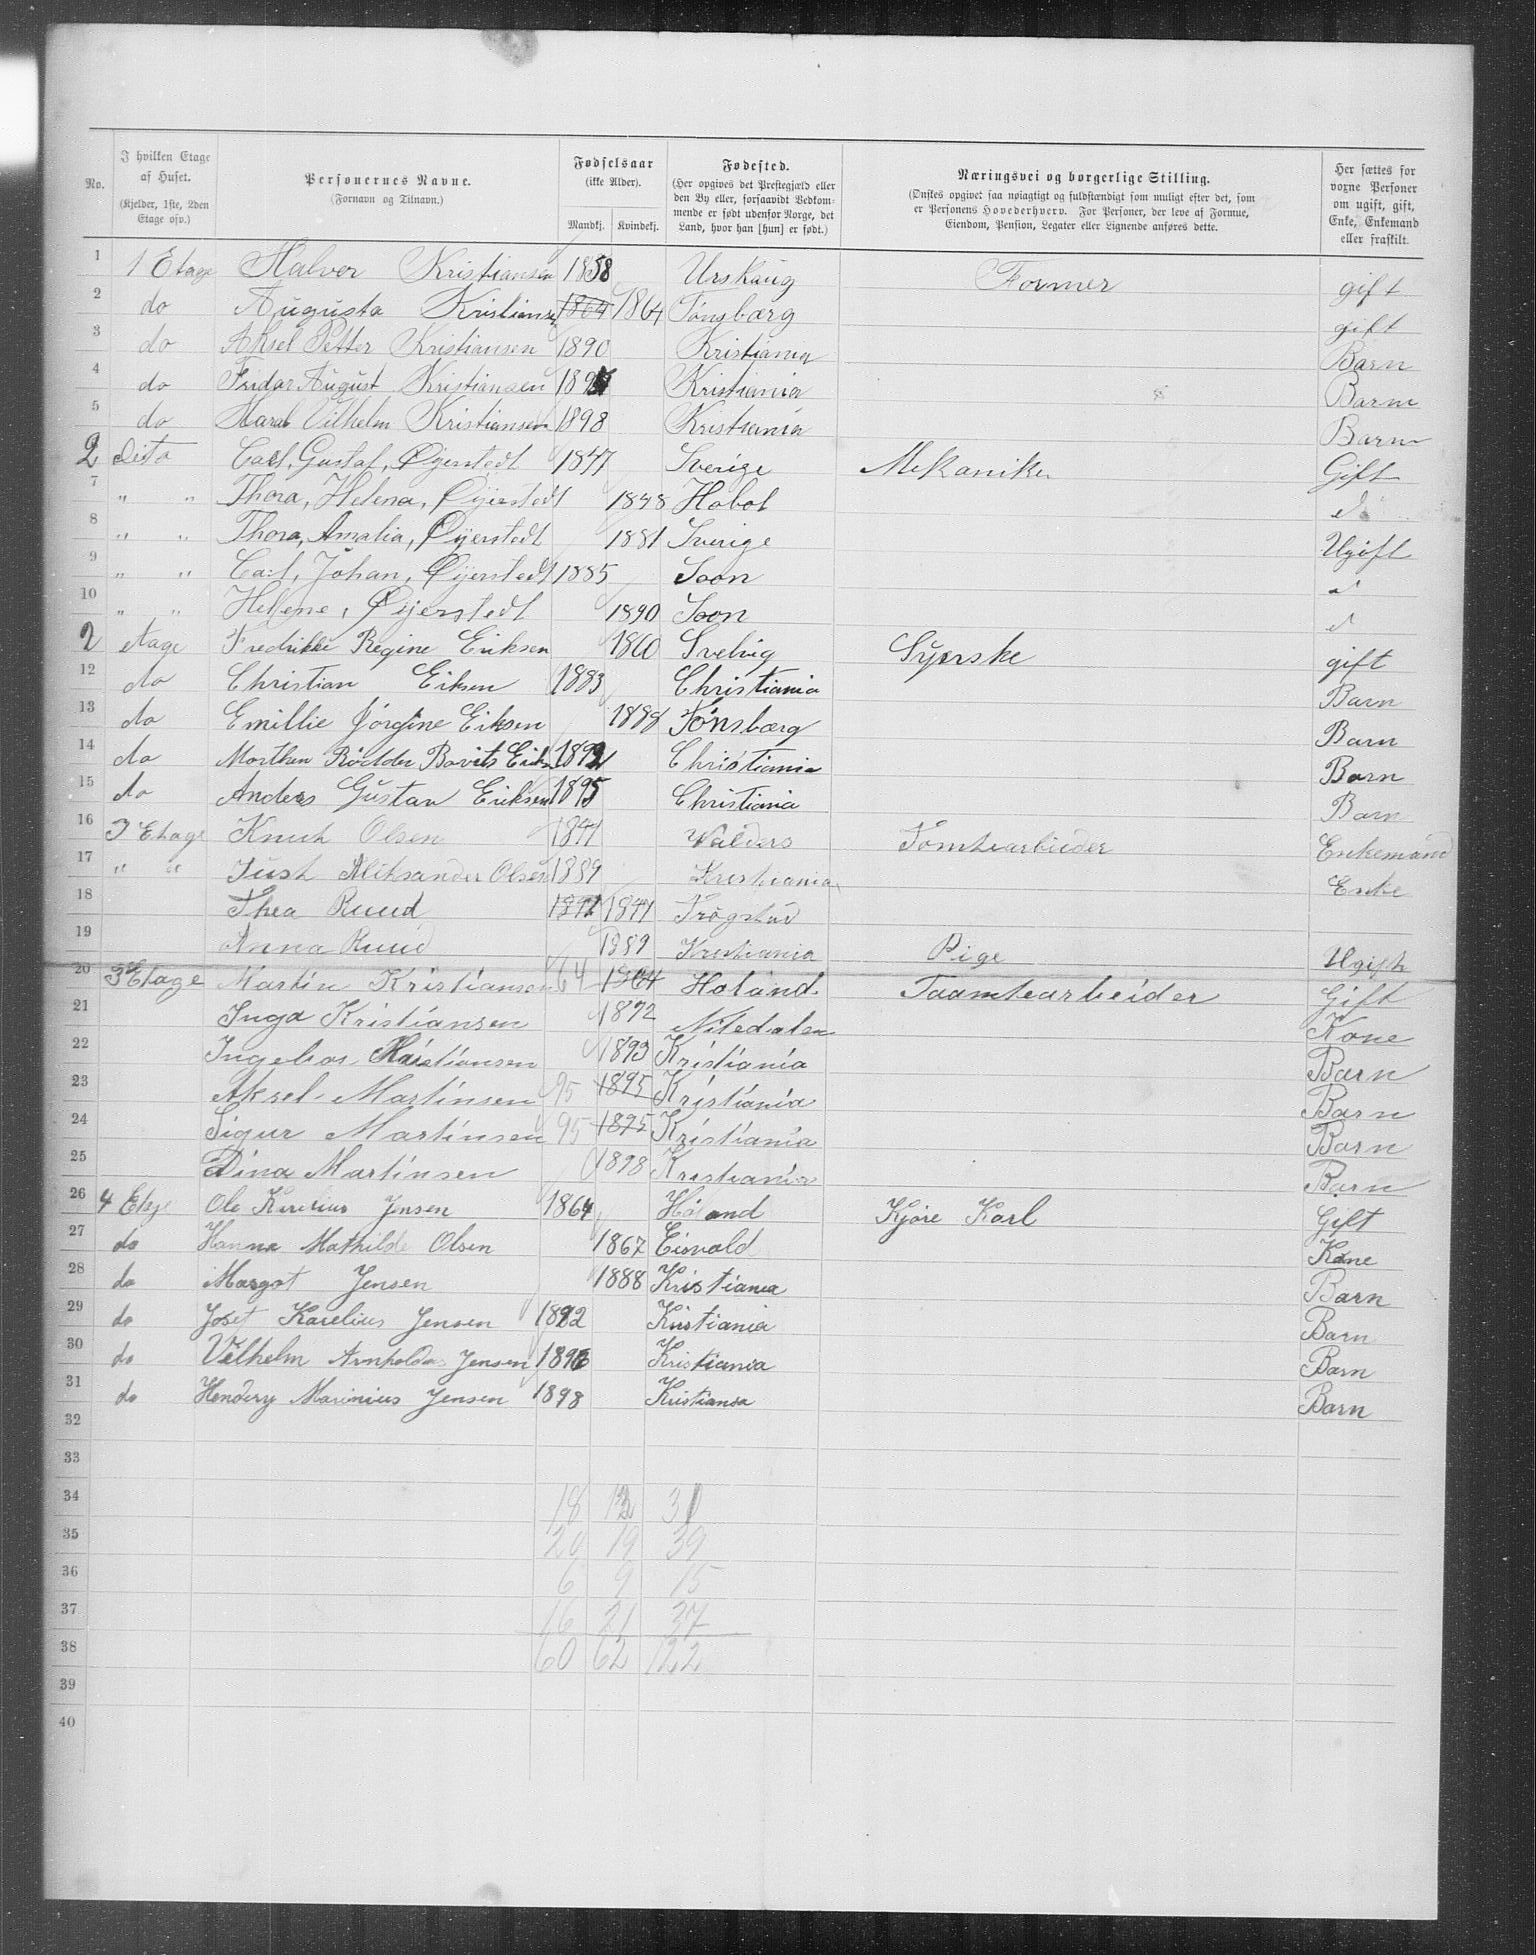 No. I hvilken Etage af Huset. (Kjelder, 1ste, 2den Etage osv.) Personernes Navne. (Fornavn og Tilnavn.) Fødselsaar (ikke Alder). Mandkj. Kvindekj. Fødested. (Her opgives det Prestegjæld eller den By eller, forsaavidt Vedkommende er født udenfor Norge, det Land, hvor han [hun] er født.) Næringsvei og borgerlige Stilling. (Ønskes opgivet saa nøiagtigt og fuldstændigt som muligt efter det, som er Personens Hovederhverv. For Personer, der leve af Formue, Eiendom, Pension, Legater eller Lignende anføres dette. Her sættes for voxne Personer om ugift, gift, Enke, Enkemand eller fraskilt.
1 1 Etage Halvor Kristiansen 1858 Urskaug Former gift
2 do Augusta Kristianse 1864 1864 Tönsbærg gift
3 do Aksel Petter Kristiansen 1890 Kristiania Barn
4 do Fridar August Kristiansen 189 Kristiania Barn
5 do Haral Vilhelm Kristiansen 1898 Kristiania Barn
2 Dito Carl, Gustaf, Øijerstedt 1847 Sverige Mekaniker Gift
7 " " Thora, Helena, Øijerstedt 1848 Hobol d
8 " " Thora, Amalia, Øijerstedt 1881 Sverige Ugift
9 " " Carl, Johan, Øijerstedt 1885 Soon d
10 " " Helene, Øijerstedt 1890 Soon d
2 etage Fredrikke Regine Eriksen 1860 Svelvig Syerske gift
12 do Christian Eiksen 1883 Christiania Barn
13 do Emillie Jörgine Eiksen 1888 Tönsbærg Barn
14 do Morthen Rödder Bovits Eiks 1892 Christiania Barn
15 do Anders Gustav Eriksen 1895 Christiania Barn
16 3 Etage Knut Olsen 1844 Valders Tomtearbeider Enkemand
17 " " Just Aliksander Olsen 1889 Kristiania Enke
18 Thea Ruud 1847 1847 Trögstad
19 Anna Ruud 1889 Kristiania Pige Ugift
20 3 Etage Martin Kristiansen 64 1864 Höland Taamtearbeider Gift
21 Inga Kristiansen 1872 Nitedalen Kone
22 Ingebor Kristiansen 1893 Kristiania Barn
23 Aksel Martinsen 95 1895 Kristiania Barn
24 Sigur Martinsen 95 1895 Kristiania Barn
25 Dina Martinsen 1898 Kristiania Barn
26 4 Etage Ole Kirilius Jensen 1864 Höland Kjöre Karl Gift
27 do Hanna Mathilde Olsen 1867 Eisvold Kone
28 do Margot Jensen 1888 Kristiania Barn
29 do Josef Karelius Jensen 1892 Kristiania Barn
30 do Vilhelm Arnholdus Jensen 1896 Kristiania Barn
31 do Hendery Marinius Jensen 1898 Kristiania Barn
32
33
34 18 13 31
35 20 19 39
36 6 9 15
37 16 21 37
38 60 62 122
39
40